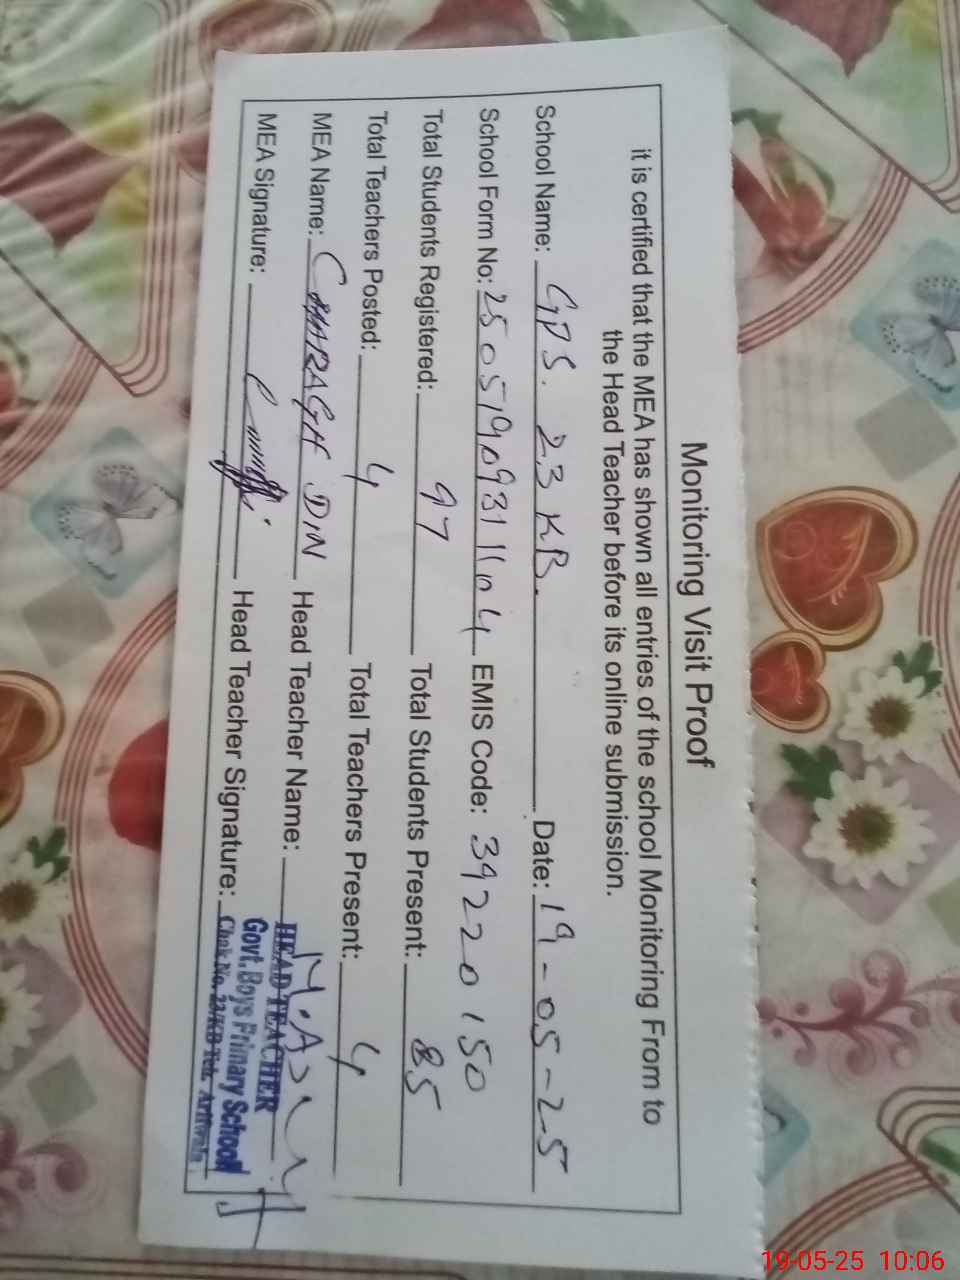 Monitoring Visit Proof
it is certified that the MEA has shown all entries of the school Monitoring From to
the Head Teacher before its online submission.
School Name: GPS. 23 KB. Date: 19-05-25
School Form No: 2505190931104 EMIS Code: 39220150
Total Students Registered: 97 Total Students Present: 85
Total Teachers Posted: 4 Total Teachers Present: 4
MEA Name: CHARAGH DIN Head Teacher Name:
MEA Signature: Head Teacher Signature:
HEAD TEACHER
Govt. Boys Primary School
Chak No. 23/KB Teh. Arifwala
19-05-25 10:06